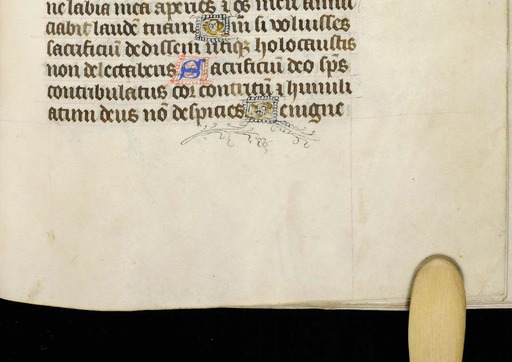 ne labia mea aperies ⁊ os meū annū
ciabit laudē tuam Qm̄ si voluisses
sacrificiū dedissem utiqꝫ holocaustis
non delectaberis Sacrificiū deo sp̄s
contribulatus cor contritū ⁊ humili
atum deus nō despicies Benigne